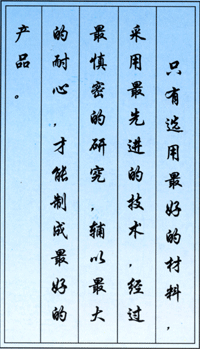 只有选用最好的材料，
采用最先进的技术，经过
最慎密的研究，辅以最大
的耐心，才能制成最好的
产品。